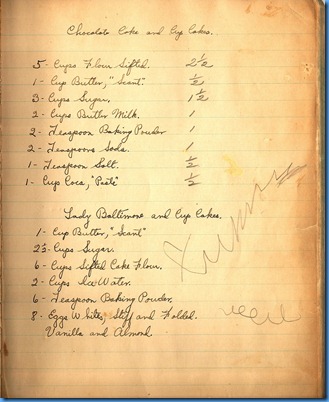 Chocolate Cake and Cup Cakes.
5- Cups Flour Sifted. 2½
1- Cup Butter, "Scant". ½
3- Cups Sugar. 1½
2- Cups Butter Milk. 1
2- Teaspoon Baking Powder 1
2- Teaspoons Soda. 1
1- Teaspoon Salt. ½
1- Cup Coca, "Paste" ½
Lady Baltimore and Cup Cakes.
1- Cup Butter, "Scant"
Cups Sugar.
6- Cups Sifted Cake Flour.
2- Cups Ice Water.
6- Teaspoon Baking Powder.
8- Eggs Whites, Stiff and Folded.
Vanilla and Almond